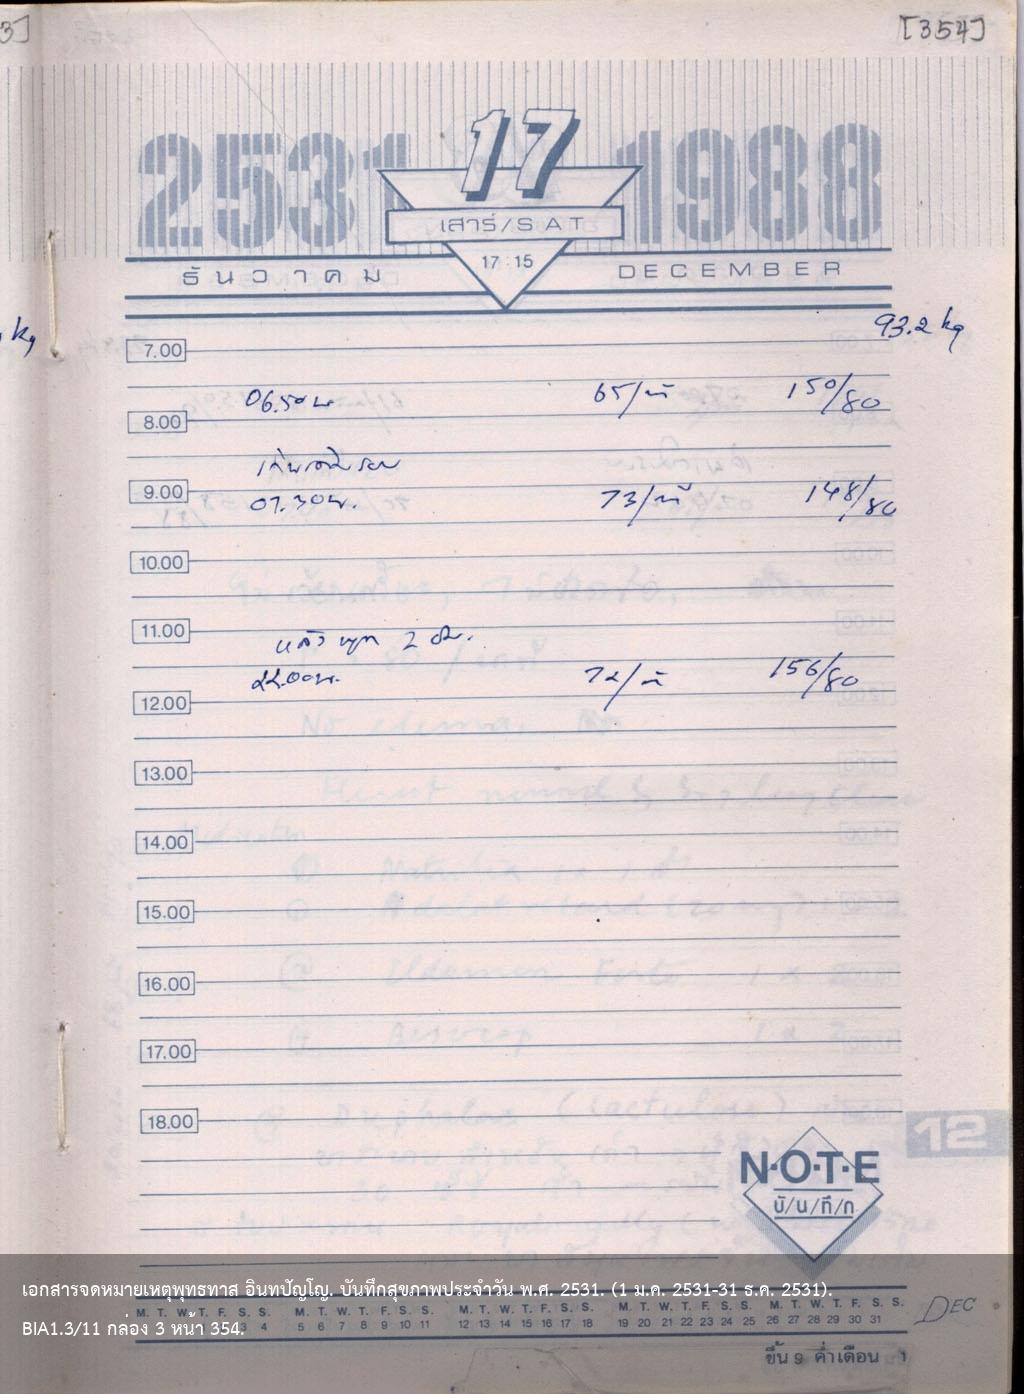 3]
[354]
2531 17 1988
เสาร์/SAT
17:15
ธันวาคม DECEMBER
kg
93.2 kg
7.00
06.50 น. 65/นาที 150/80
8.00
9.00
07.30 น. 73/นาที 148/80
10.00
11.00
แล้วพูด 2 ชม.
22.00 น. 72/นาที 156/80
12.00
13.00
14.00
15.00
16.00
17.00
18.00
12
N·O·T·E
บั/น/ทึ/ก
เอกสารจดหมายเหตุพุทธทาส อินทปัญโญ. บันทึกสุขภาพประจำวัน พ.ศ. 2531. (1 ม.ค. 2531-31 ธ.ค. 2531).
M. T. W. T. F. S. S. M. T. W. T. F. S. S. M. T. W. T. F. S. S. M. T. W. T. F. S. S. M. T. W. T. F. S. S.
3 4 5 6 7 8 9 10 11 12 13 14 15 16 17 18 19 20 21 22 23 24 25 26 27 28 29 30 31
DEC
BIA1.3/11 กล่อง 3 หน้า 354.
ขึ้น 9 ค่ำเดือน 1